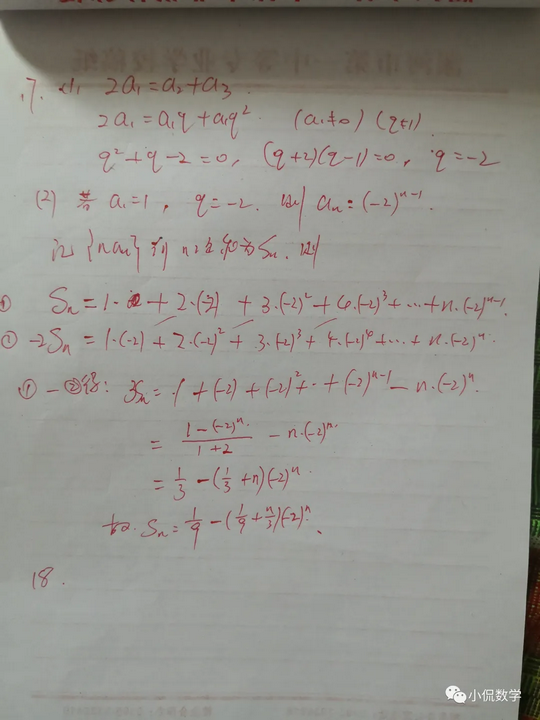 17. (1) 2a₁=a₂+a₃.
2a₁=a₁q+a₁q² (a₁≠0) (q≠1)
q²+q-2=0, (q+2)(q-1)=0, q=-2
(2) 若 a₁=1, q=-2. 则 aₙ=(-2)ⁿ⁻¹.
记{naₙ}前n项和为Sₙ. 则
① Sₙ=1· + 2·(-2) + 3·(-2)²+4·(-2)³+…+n·(-2)ⁿ⁻¹.
② -2Sₙ=1·(-2)+2·(-2)²+3·(-2)³+4·(-2)⁴+…+n·(-2)ⁿ.
①-②得: 3Sₙ=1+(-2)+(-2)²+…+(-2)ⁿ⁻¹-n·(-2)ⁿ.
= (1-(-2)ⁿ)/(1+2) - n·(-2)ⁿ.
= 1/3-(1/3+n)(-2)ⁿ.
故. Sₙ=1/9-(1/9+n/3)(-2)ⁿ.
18.
小侃数学